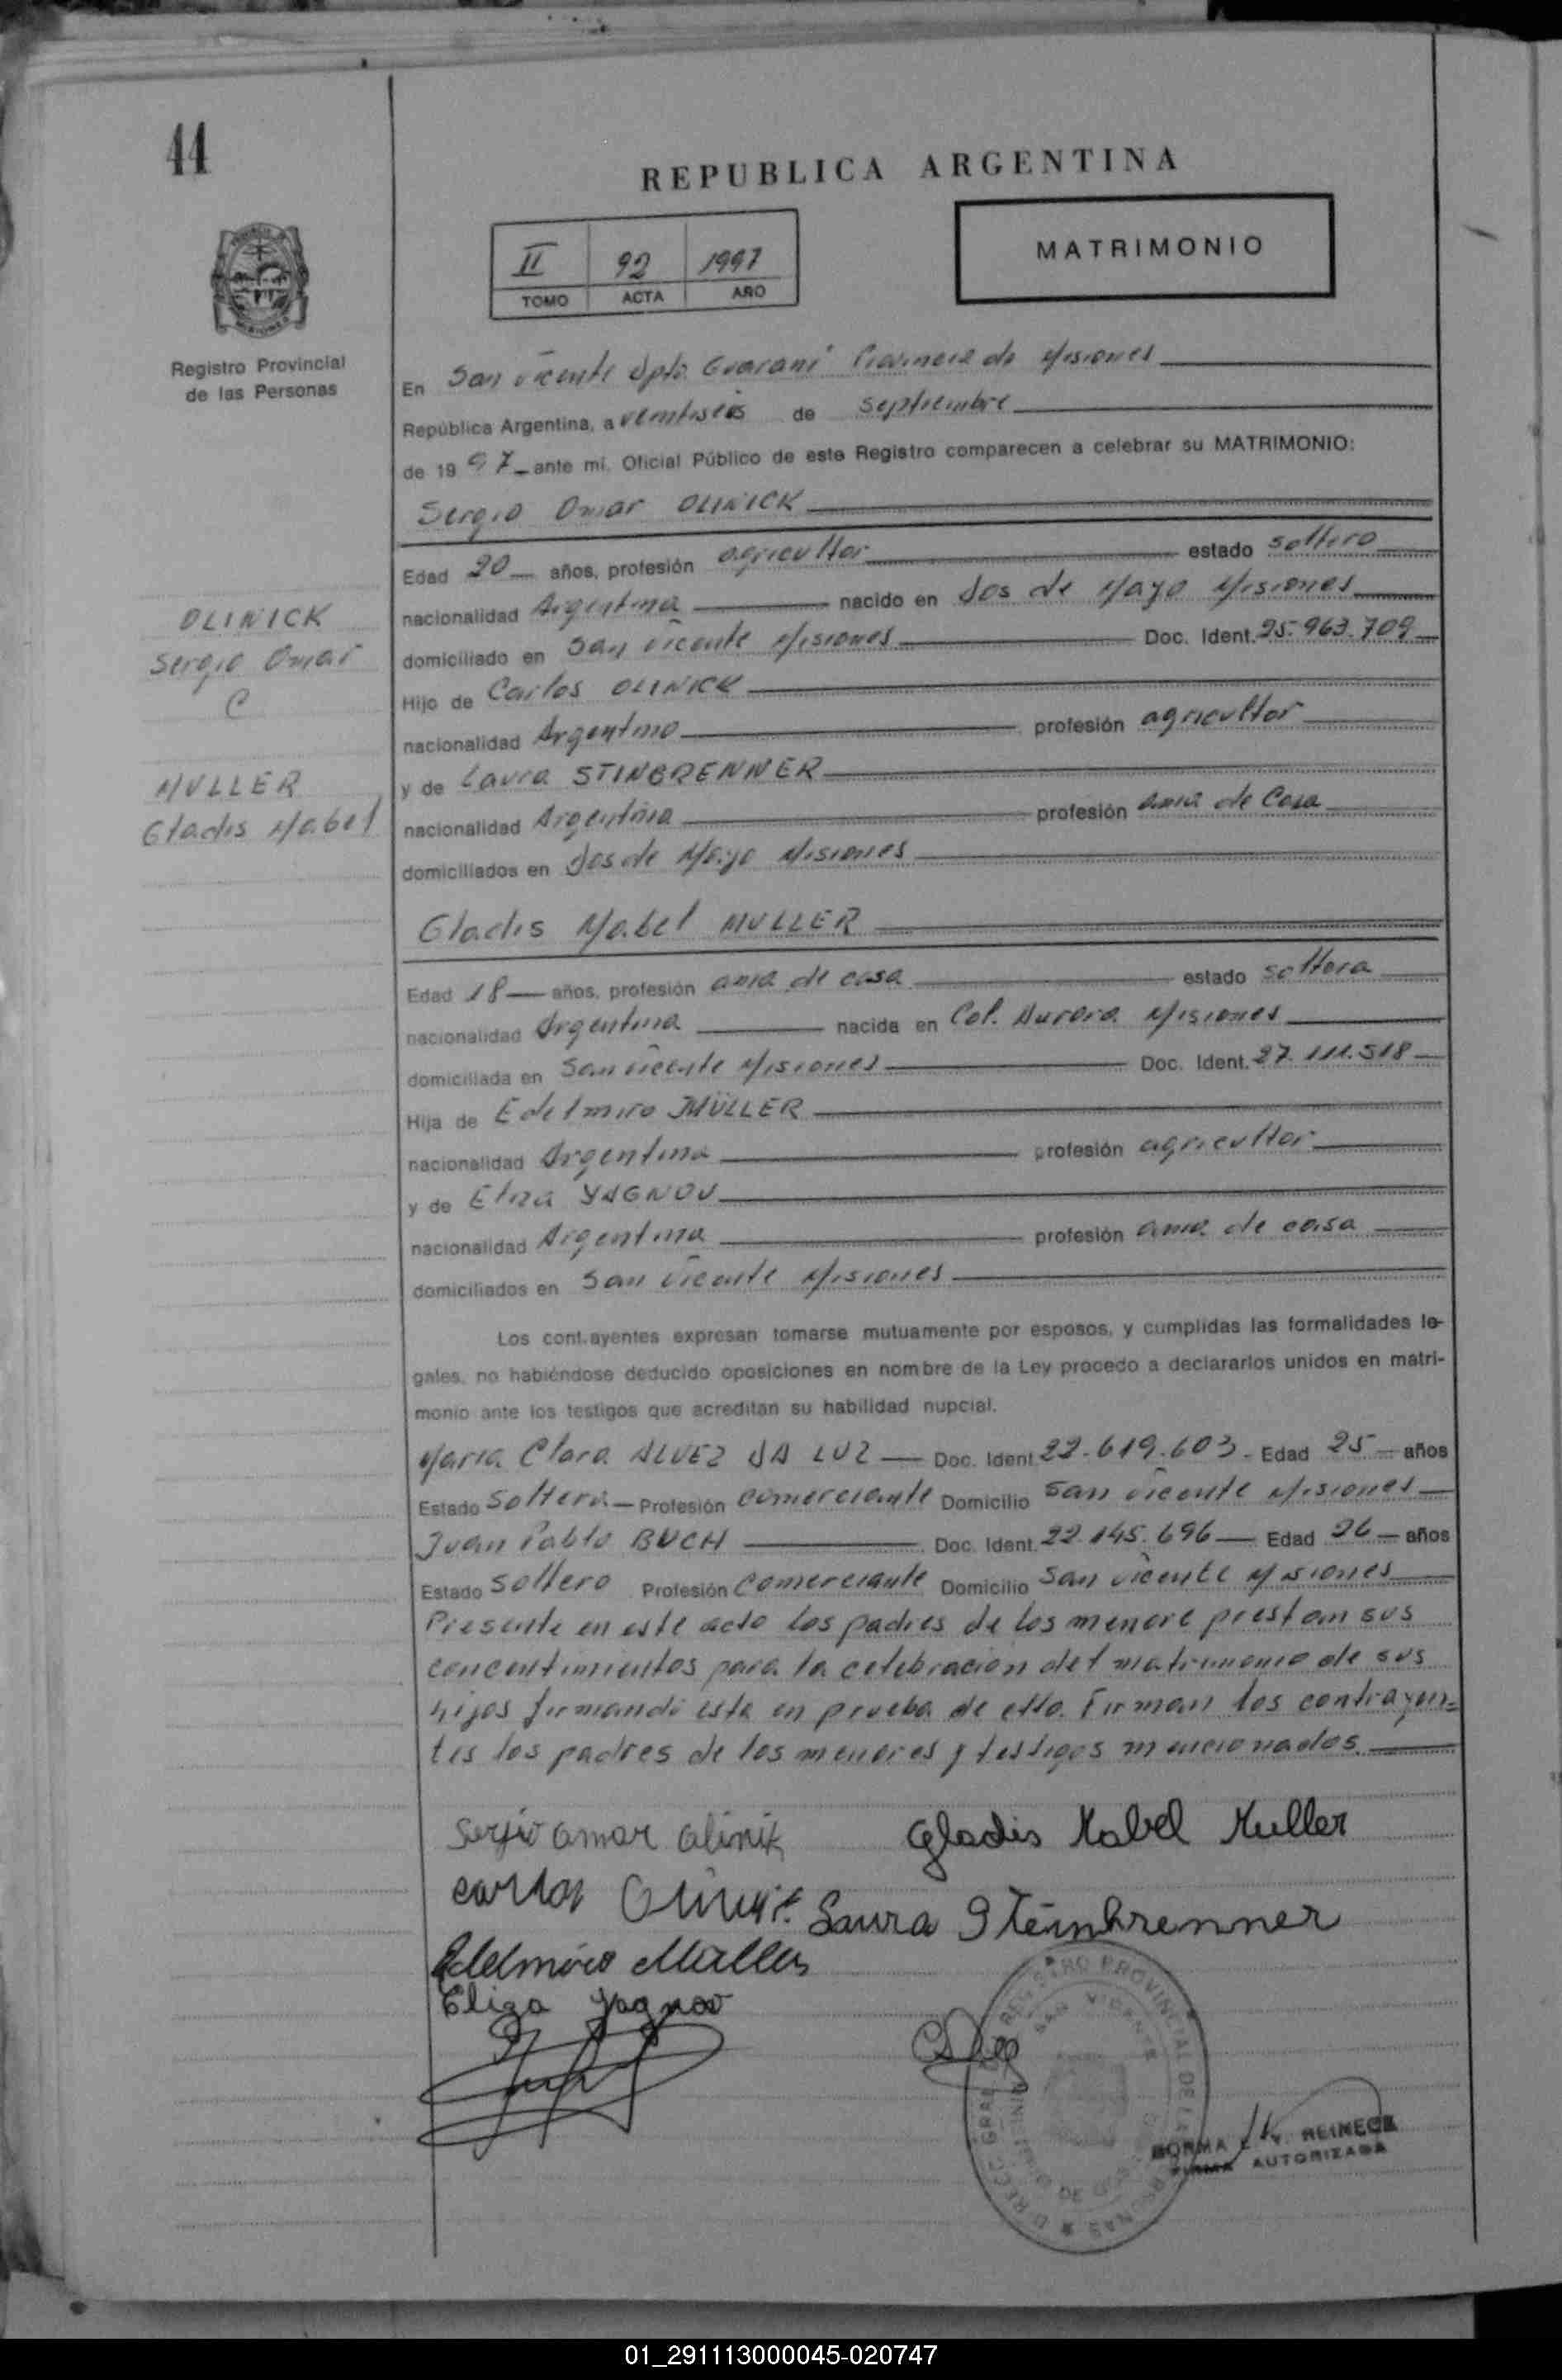 44
REPUBLICA ARGENTINA
II 92 1997
TOMO ACTA AÑO
MATRIMONIO
Registro Provincial
de las Personas
En San Vicente Dpto. Guaraní Provincia de Misiones
República Argentina, a veintiseis de septiembre
de 19 97 ante mí, Oficial Público de este Registro comparecen a celebrar su MATRIMONIO:
Sergio Omar OLINICK
Edad 20 años, profesión agricultor estado soltero
nacionalidad Argentina nacido en Dos de Mayo Misiones
domiciliado en San Vicente Misiones Doc. Ident. 25.963.709
Hijo de Carlos OLINICK
nacionalidad Argentino profesión agricultor
y de Laura STINBRENNER
nacionalidad Argentina profesión ama de Casa
domiciliados en Dos de Mayo Misiones
OLINICK
Sergio Omar
C
MULLER
Gladis Mabel
Gladis Mabel MULLER
Edad 18 años, profesión ama de casa estado soltera
nacionalidad Argentina nacida en Col. Aurora Misiones
domiciliada en San Vicente Misiones Doc. Ident. 27.111.518
Hija de Edelmiro MÜLLER
nacionalidad Argentina profesión agricultor
y de Eliza YAGNOV
nacionalidad Argentina profesión ama de casa
domiciliados en San Vicente Misiones
Los contrayentes expresan tomarse mutuamente por esposos, y cumplidas las formalidades le-
gales, no habiéndose deducido oposiciones en nombre de la Ley procedo a declararlos unidos en matri-
monio ante los testigos que acreditan su habilidad nupcial.
Maria Clara ALVEZ DA LUZ Doc. Ident 22.619.603 Edad 25 años
Estado Soltera Profesión comerciante Domicilio San Vicente Misiones
Juan Pablo BUCH Doc. Ident. 22.145.696 Edad 26 años
Estado Soltero Profesión Comerciante Domicilio San Vicente Misiones
Presente en este acto los padres de los menore prestam sus
concentimientos para la celebracion del matrimonio de sus
hijos firmando esta en prueba de ello. Firman los contrayen=
tes los padres de los menores y testigos mencionados.
Serjio omar olinik Gladis Mabel Muller
Carlos Laura Steinbrenner
Edelmiro Muller
Eliza Yagnov
REGISTRO PROVINCIAL DE LAS PERSONAS
SAN VICENTE
NORMA REINECK
FIRMA AUTORIZADA
01_291113000045-020747